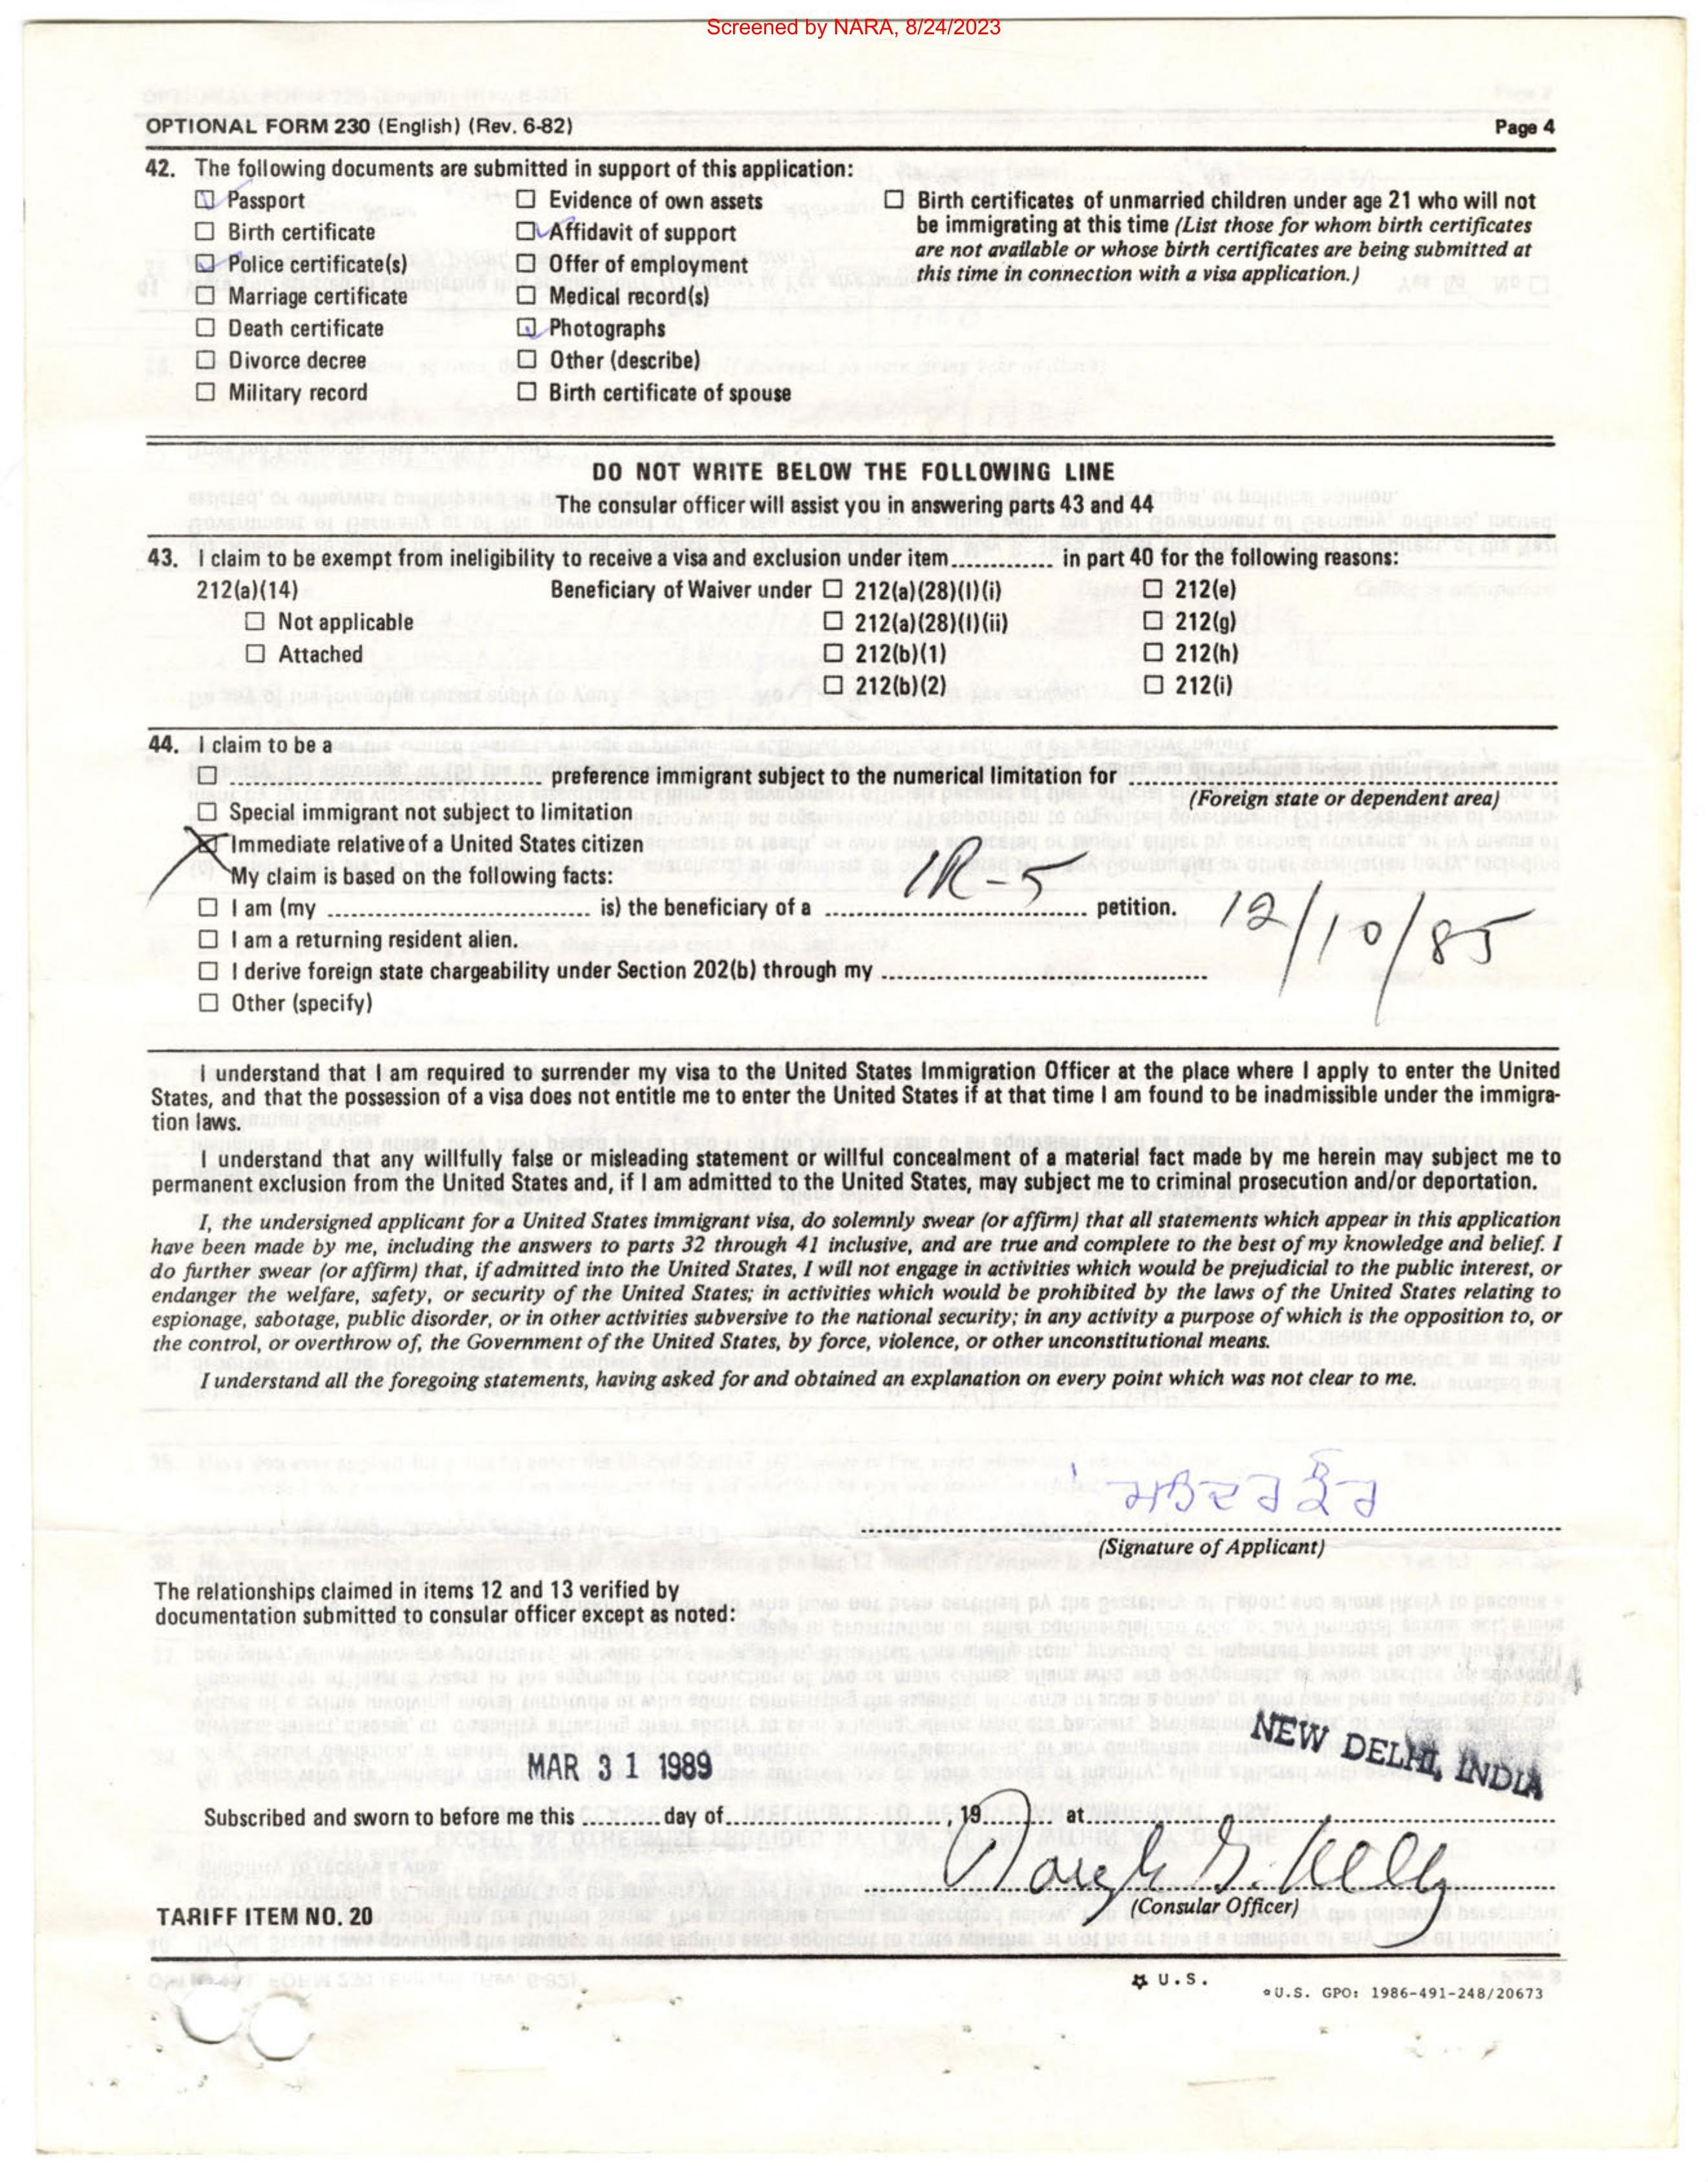 Screened by NARA, 8/24/2023
OPTIONAL FORM 230 (English) (Rev. 6-82) Page 4
42. The following documents are submitted in support of this application:
☑ Passport ☐ Evidence of own assets ☐ Birth certificates of unmarried children under age 21 who will not
☐ Birth certificate ☑ Affidavit of support be immigrating at this time (List those for whom birth certificates
☑ Police certificate(s) ☐ Offer of employment are not available or whose birth certificates are being submitted at
☐ Marriage certificate ☐ Medical record(s) this time in connection with a visa application.)
☐ Death certificate ☑ Photographs
☐ Divorce decree ☐ Other (describe)
☐ Military record ☐ Birth certificate of spouse
DO NOT WRITE BELOW THE FOLLOWING LINE
The consular officer will assist you in answering parts 43 and 44
43. I claim to be exempt from ineligibility to receive a visa and exclusion under item............. in part 40 for the following reasons:
212(a)(14) Beneficiary of Waiver under ☐ 212(a)(28)(I)(i) ☐ 212(e)
☐ Not applicable ☐ 212(a)(28)(I)(ii) ☐ 212(g)
☐ Attached ☐ 212(b)(1) ☐ 212(h)
☐ 212(b)(2) ☐ 212(i)
44. I claim to be a
☐ ............................ preference immigrant subject to the numerical limitation for ............................
(Foreign state or dependent area)
☐ Special immigrant not subject to limitation
☒ Immediate relative of a United States citizen
My claim is based on the following facts:
☐ I am (my ............................ is) the beneficiary of a IR-5 petition. 12/10/85
☐ I am a returning resident alien.
☐ I derive foreign state chargeability under Section 202(b) through my ............................
☐ Other (specify)
I understand that I am required to surrender my visa to the United States Immigration Officer at the place where I apply to enter the United
States, and that the possession of a visa does not entitle me to enter the United States if at that time I am found to be inadmissible under the immigra-
tion laws.
I understand that any willfully false or misleading statement or willful concealment of a material fact made by me herein may subject me to
permanent exclusion from the United States and, if I am admitted to the United States, may subject me to criminal prosecution and/or deportation.
I, the undersigned applicant for a United States immigrant visa, do solemnly swear (or affirm) that all statements which appear in this application
have been made by me, including the answers to parts 32 through 41 inclusive, and are true and complete to the best of my knowledge and belief. I
do further swear (or affirm) that, if admitted into the United States, I will not engage in activities which would be prejudicial to the public interest, or
endanger the welfare, safety, or security of the United States; in activities which would be prohibited by the laws of the United States relating to
espionage, sabotage, public disorder, or in other activities subversive to the national security; in any activity a purpose of which is the opposition to, or
the control, or overthrow of, the Government of the United States, by force, violence, or other unconstitutional means.
I understand all the foregoing statements, having asked for and obtained an explanation on every point which was not clear to me.
ਕੌਰ
(Signature of Applicant)
The relationships claimed in items 12 and 13 verified by
documentation submitted to consular officer except as noted:
NEW DELHI, INDIA
MAR 31 1989
Subscribed and sworn to before me this ........... day of................................, 19........... at............................
G. Kelly
(Consular Officer)
TARIFF ITEM NO. 20
☆ U.S.
°U.S. GPO: 1986-491-248/20673